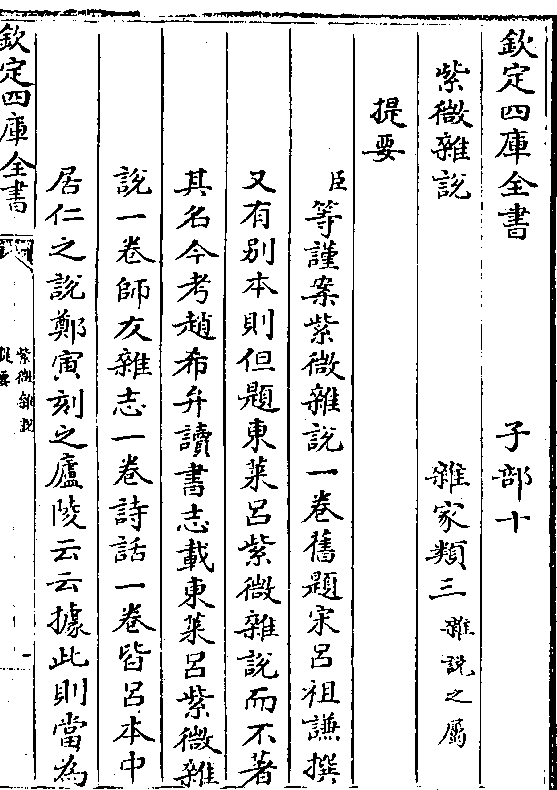 欽定四庫全書　子部十
紫微雜說　雜家類三雜說之屬
提要
臣等謹案紫微雜說一卷舊題宋呂祖謙撰
又有別本則但題東萊呂紫微雜說而不著
其名今考趙希弁讀書志載東萊呂紫微雜
說一卷師友雜志一卷詩話一卷皆呂本中
居仁之說鄭寅刻之廬陵云云據此則當為
欽定四庫全書
紫微雜說
提要
一